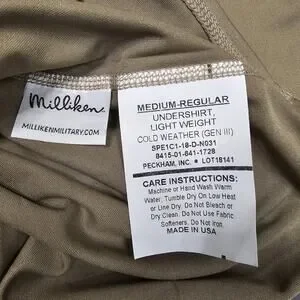 Milliken
MILLIKENMILITARY.COM
MEDIUM-REGULAR
UNDERSHIRT,
LIGHT WEIGHT
COLD WEATHER (GEN III)
SPE1C1-18-D-N031
8415-01-641-1728
PECKHAM, INC. * LOT18141
CARE INSTRUCTIONS:
Machine or Hand Wash Warm
Water. Tumble Dry On Low Heat
or Line Dry. Do Not Bleach or
Dry Clean. Do Not Use Fabric
Softeners. Do Not Iron.
MADE IN USA